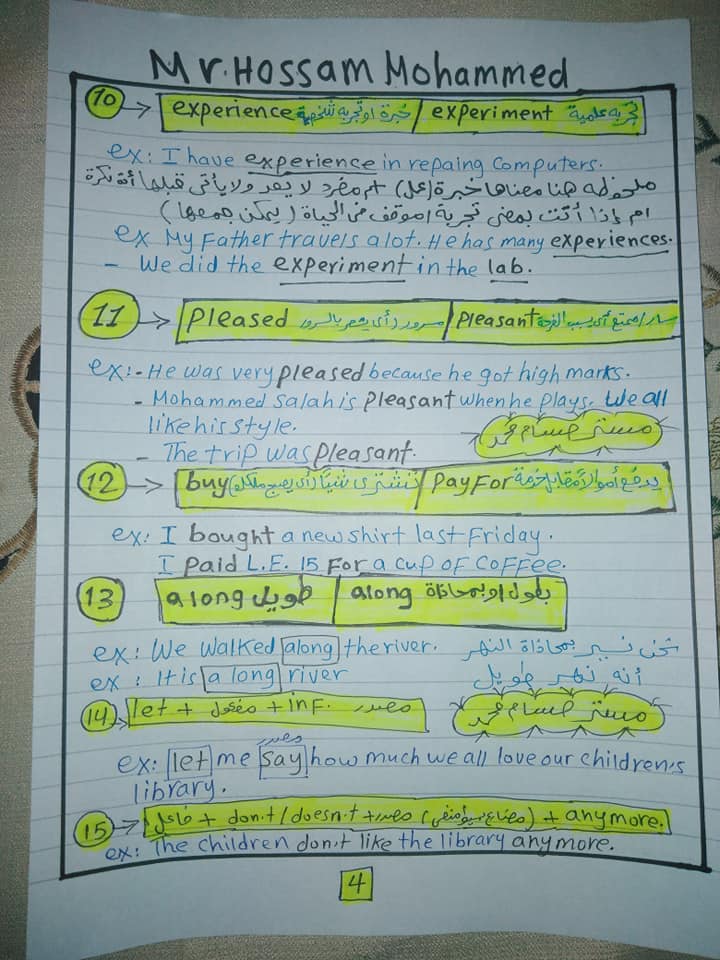 Mr. Hossam Mohammed
10 → experience خبرة او تجربه شخصية / experiment تجربه علمية
ex: I have experience in repaing computers.
ملحوظه هنا معناها خبرة (عمل) اسم مفرد لا يعد ولا يأتى قبلها أداة نكرة
ام إذا أتت بمعنى تجربة او موقف فى الحياة (يمكن جمعها)
ex My Father travels a lot. He has many experiences.
- We did the experiment in the lab.
11 → Pleased مسرور (أى يشعر بالسرور / Pleasant سار / ممتع أى يسبب الفرحة
ex:- He was very pleased because he got high marks.
- Mohammed Salah is pleasant when he plays. We all
like his style.
مستر حسام محمد
- The trip was pleasant.
12 → buy نشترى شيئا (أى يصبح ملكك) / pay For يدفع أموالا مقابل خدمة
ex: I bought a new shirt last Friday.
I paid L.E. 15 For a cup of coffee.
13 a long طويل / along بطول او بمحاذاة
ex: We walked along the river. نحن نسير بمحاذاة النهر
ex: It is a long river أنه نهر طويل
14 let + مفعول + inf. مصدر
مستر حسام محمد
مصدر
ex: let me say how much we all love our children's
library.
15 → فاعل + don't / doesn't + مصدر (مضارع بسيط منفى) + anymore.
ex: The children don't like the library anymore.
4